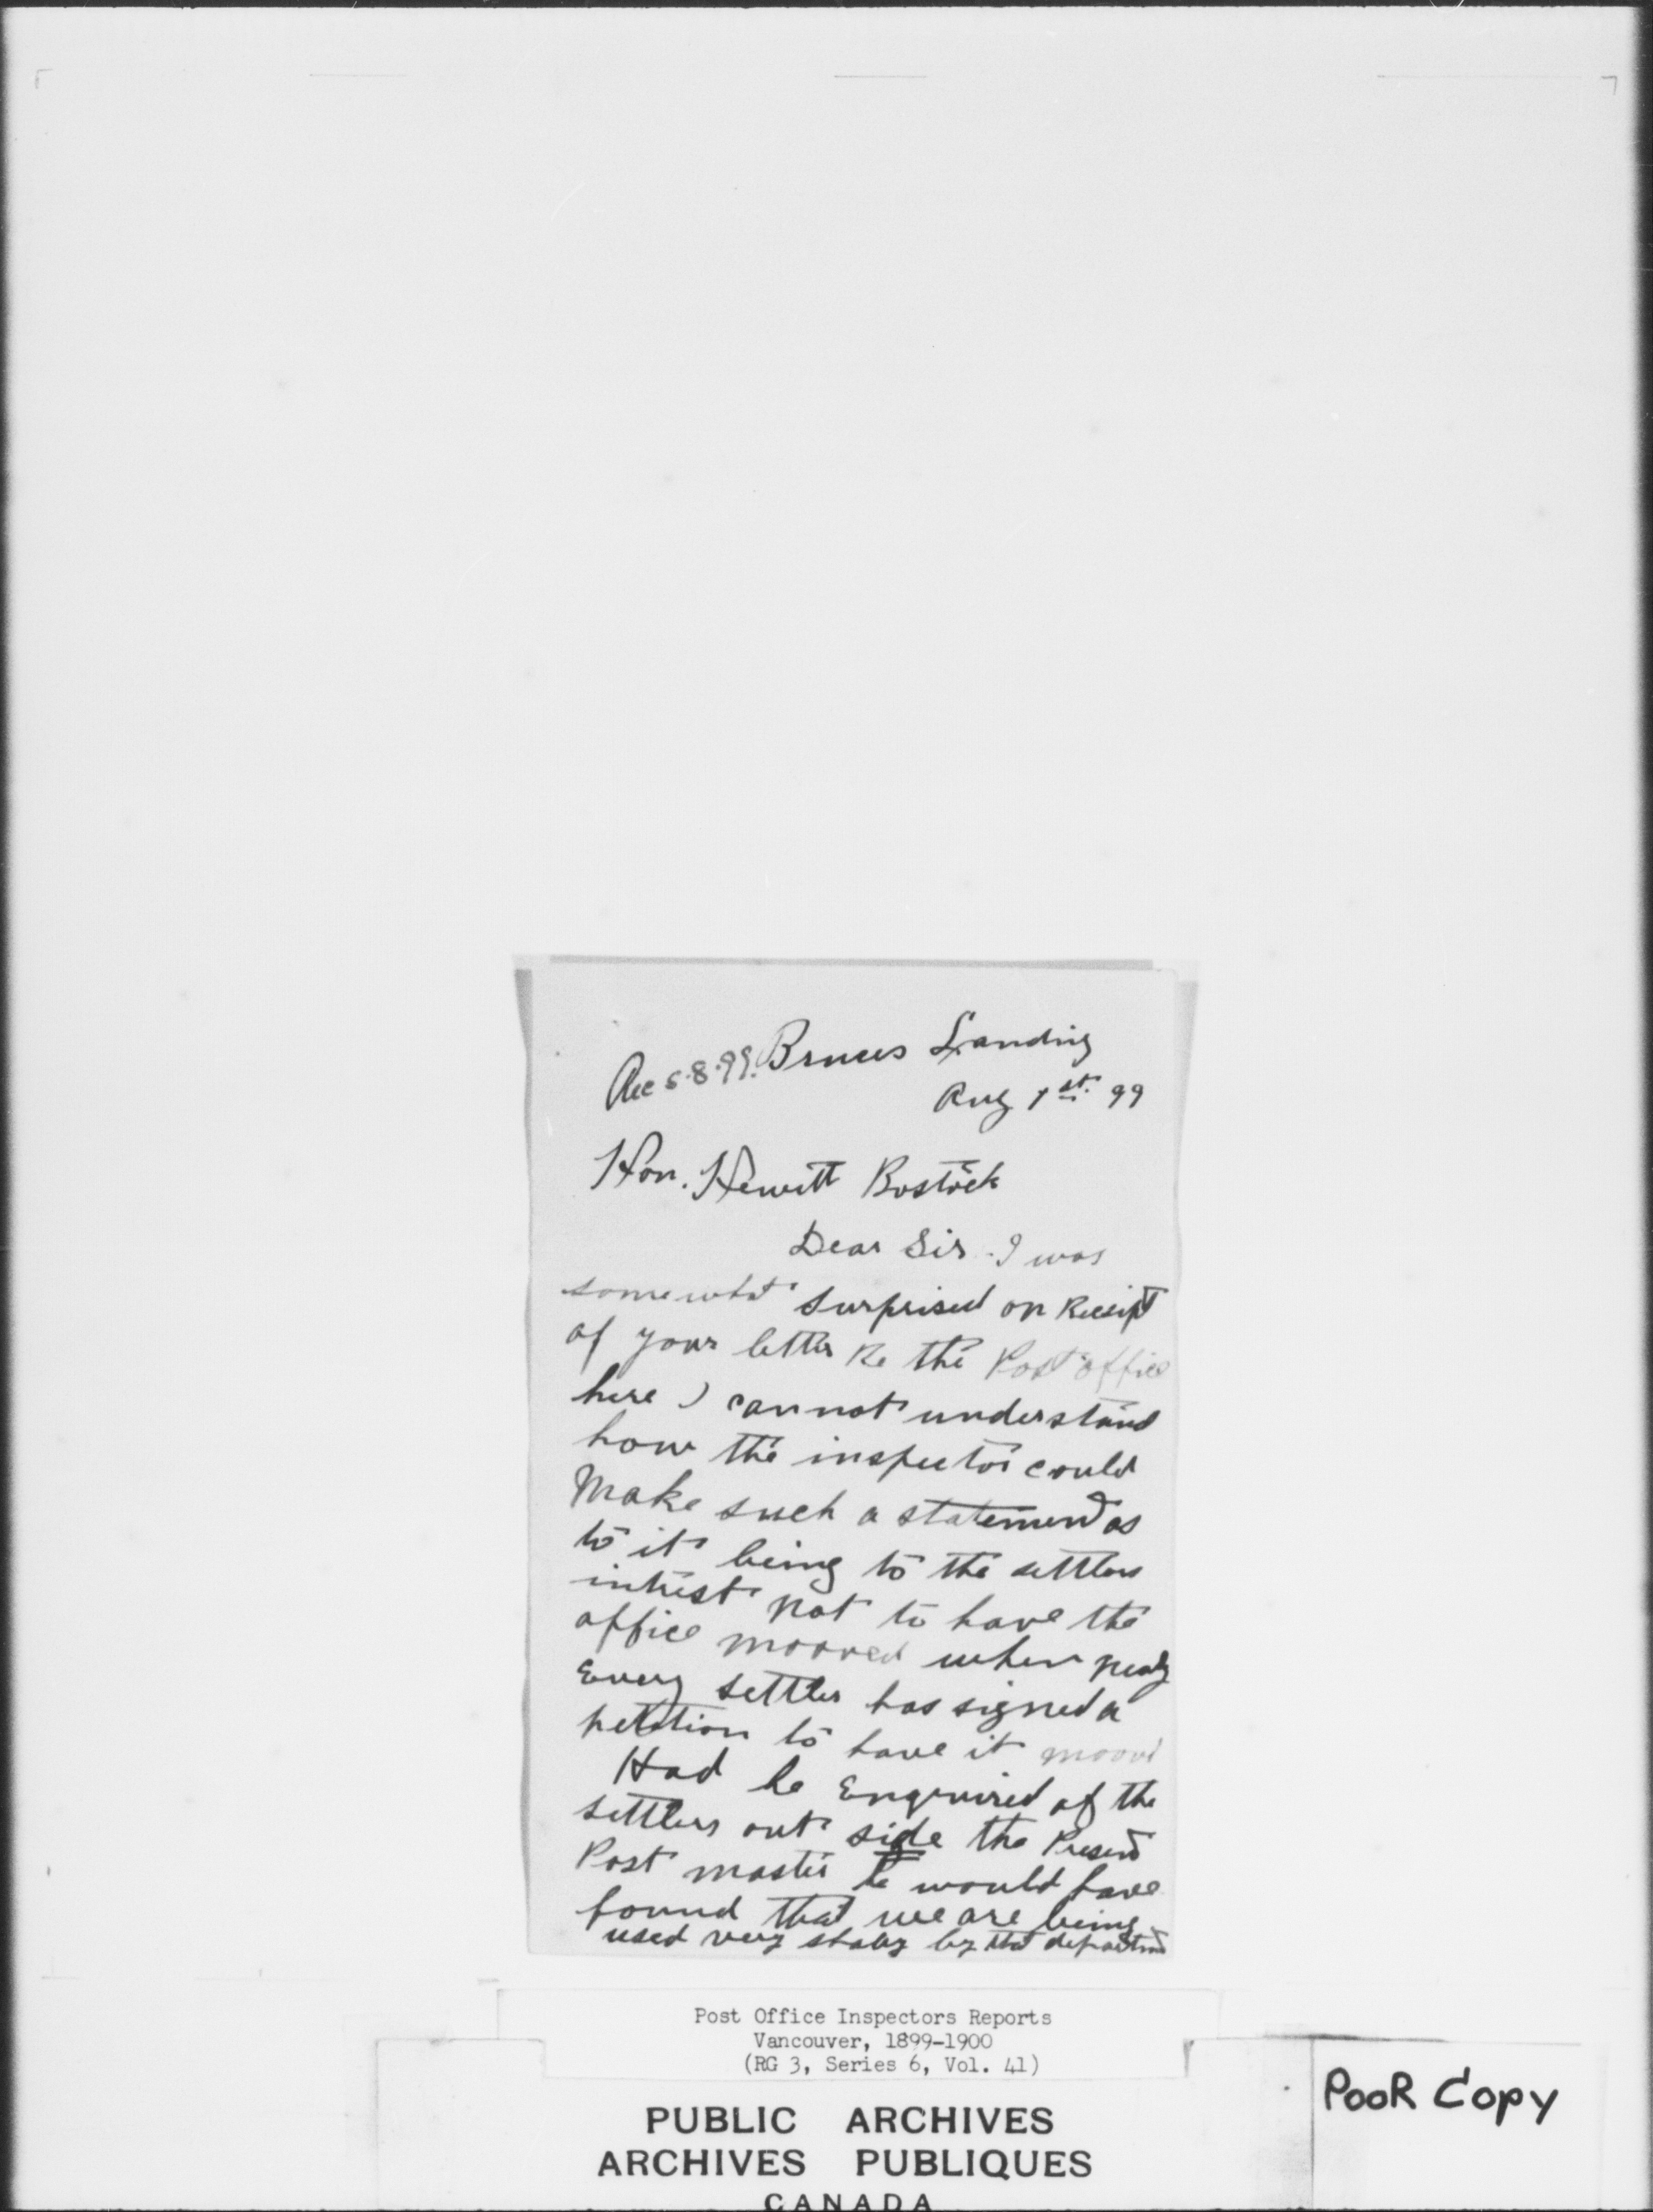 Rec 5.8.99. Bruces Landing
Aug 1st. 99
Hon. Hewitt Bostock
Dear Sir. I was
somewhat surprised on Receipt
of your letter Re the Post office
here I cannot understand
how the inspector could
Make such a statement as
to it being to the settlers
intrest not to have the
office mooved when nealy
Every settler has signed a
petetion to have it moovd
Had he Enquired of the
settlers out side the Present
Post master he would have
found that we are being
used very shaby by the department
Post Office Inspectors Reports
Vancouver, 1899-1900
(RG 3, Series 6, Vol. 41)
PUBLIC ARCHIVES
ARCHIVES PUBLIQUES
CANADA
POOR COPY